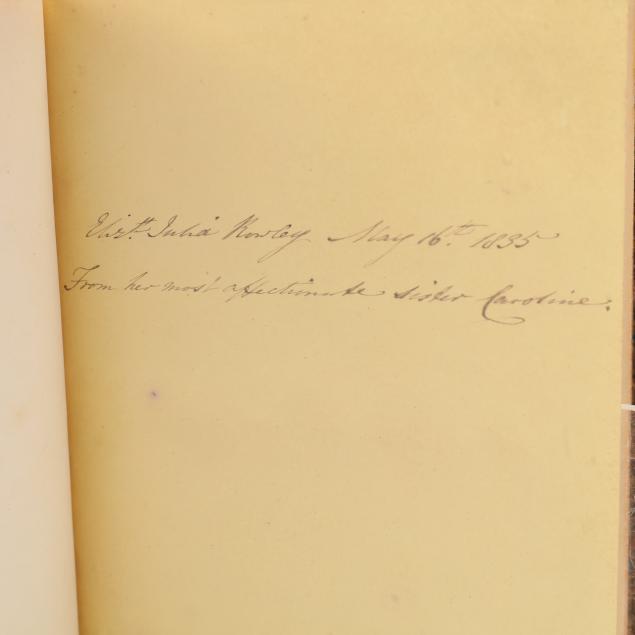 Elizth. Julia Rowley May 16th. 1835
From her most affectionate sister Caroline.